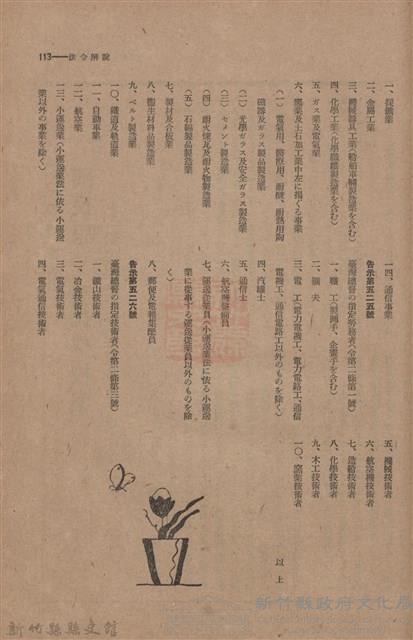 113——說解令法
一、採鑛業
二、金屬工業
三、機械器具工業(船舶車輛製造業を含む)
四、化學工業(化學纖維製造業を含む)
五、ガス業及電氣業
六、窯業及土石加工業中左に揭ぐる事業
(一)電氣用、醫療用、耐酸、耐熱用陶
磁器及ガラス製品製造業
(二)光學ガラス及安全ガラス製造業
(三)セメント製造業
(四)耐火煉瓦及耐火物製造業
(五)石綿製品製造業
七、製材及合板業
八、衞生材料品製造業
九、ベルト製造業
一〇、鐵道及軌道業
一一、自動車業
一二、航空業
一三、小運送業(小運送業法に依る小運送
業以外の事業を除く)
一四、通信事業
告示第五二五號
臺灣總督の指定勞務者(令第二條第一號)
一、職工(製圖手、金靈手を含む)
二、鑛夫
三、電工(電力電機工、電力電路工、通信
電機工、通信電路工以外のものを除く)
四、汽罐士
五、通信士
六、航空機整備員
七、運送從業員(小運送業法に依る小運送
業に從事する運送從業員以外のものを除
く)
八、郵便及電報集配員
告示第五二六號
臺灣總督の指定技術者(令第二條第三號)
一、鑛山技術者
二、冶金技術者
三、電氣技術者
四、電氣通信技術者
五、機械技術者
六、航空機技術者
七、造船技術者
八、化學技術者
九、木工技術者
一〇、窯業技術者
以上
新竹縣政府文化局
新竹縣縣史館